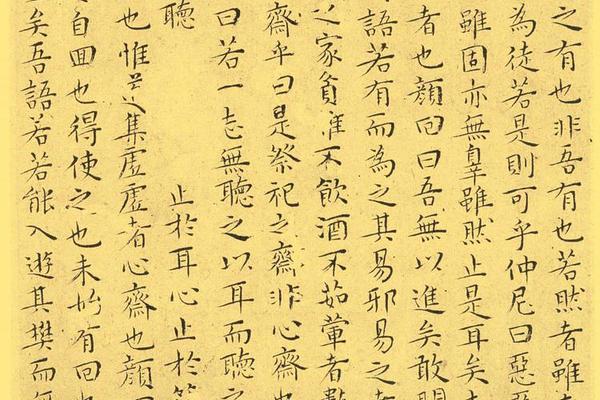 之有也非吾有也若然者雖
為徒若是則可乎仲尼曰惡惡
雖固亦無辠雖然止是耳矣夫
者也顏回曰吾無以進矣敢問
語若有而為之其易邪易之者
之家貧唯不飲酒不茹葷者數
齋乎曰是祭祀之齋非心齋也
曰若一志無聽之以耳而聽之
聽止於耳心止於符
也惟道集虛虛者心齋也顏回
自回也得使之也未始有回也
矣吾語若若能入遊其樊而無